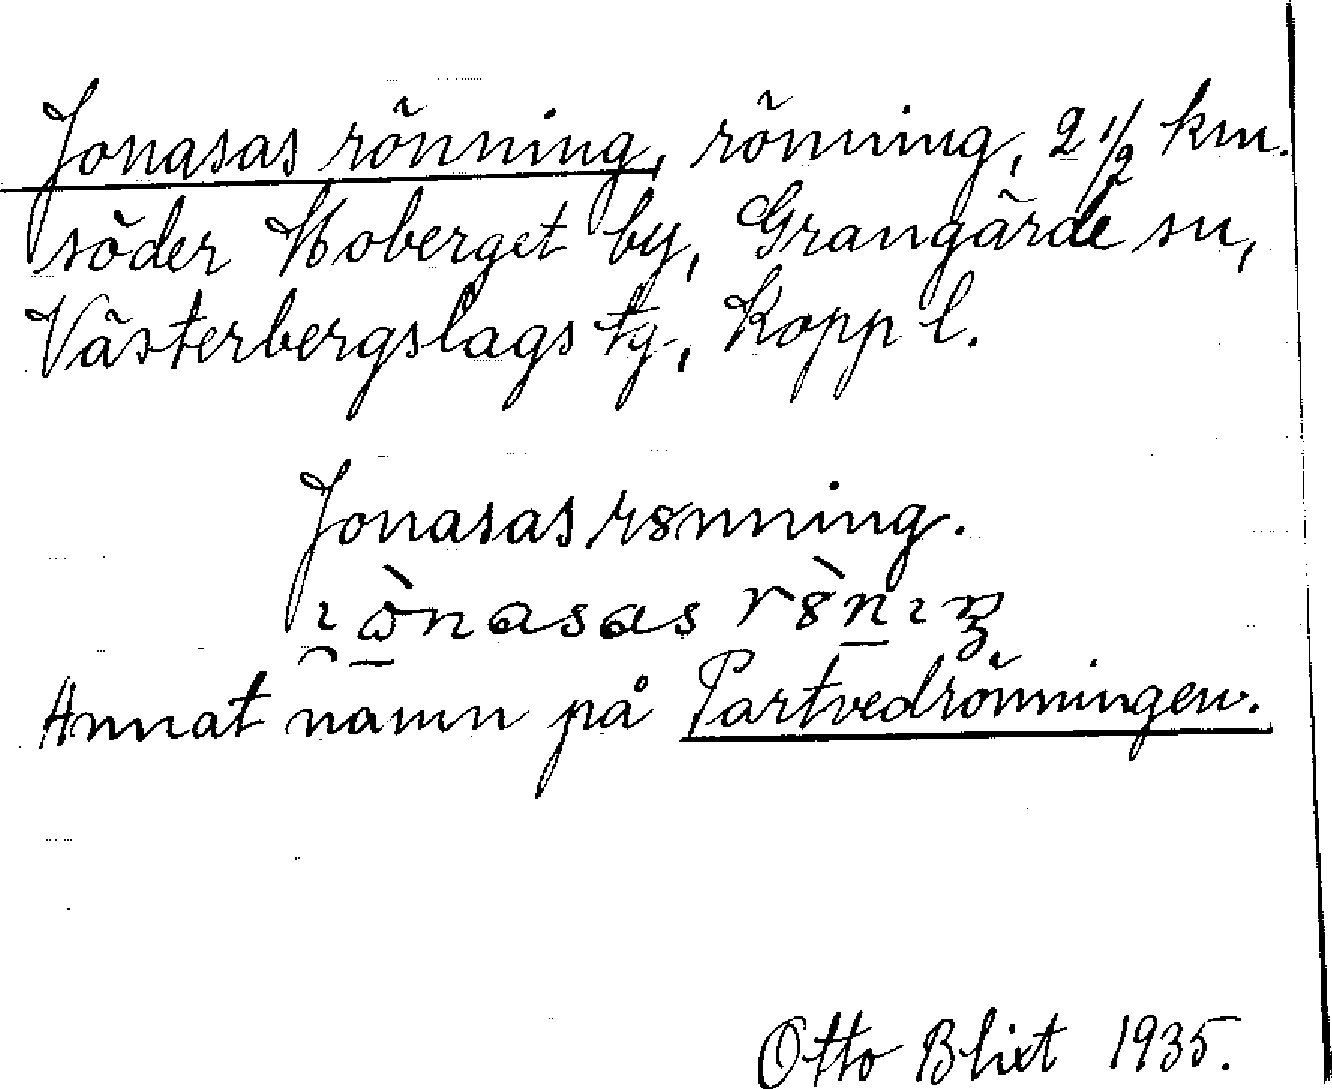 Jonasas rönning, rönning, 2 1/2 km.
söder Hoberget by, Grangärde sn,
Västerbergslags tg, Kopp l.
Jonasasrønning.
Annat namn på Partvedrönningen.
Otto Blixt 1935.